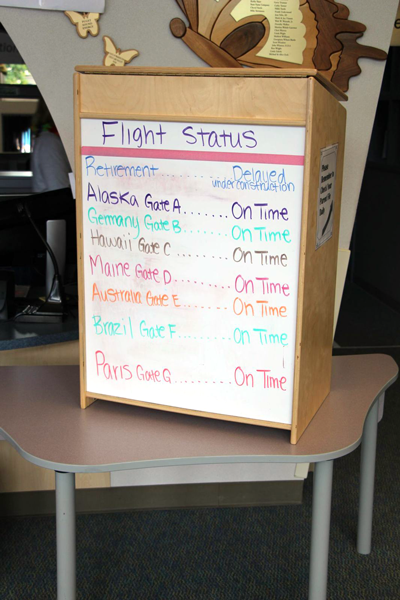 Flight Status
Retirement ........ Delayed
under construction
Alaska Gate A ....... On Time
Germany Gate B ....... On Time
Hawaii Gate C ....... On Time
Maine Gate D ........ On Time
Australia Gate E ....... On Time
Brazil Gate F ........ On Time
Paris Gate G ......... On Time